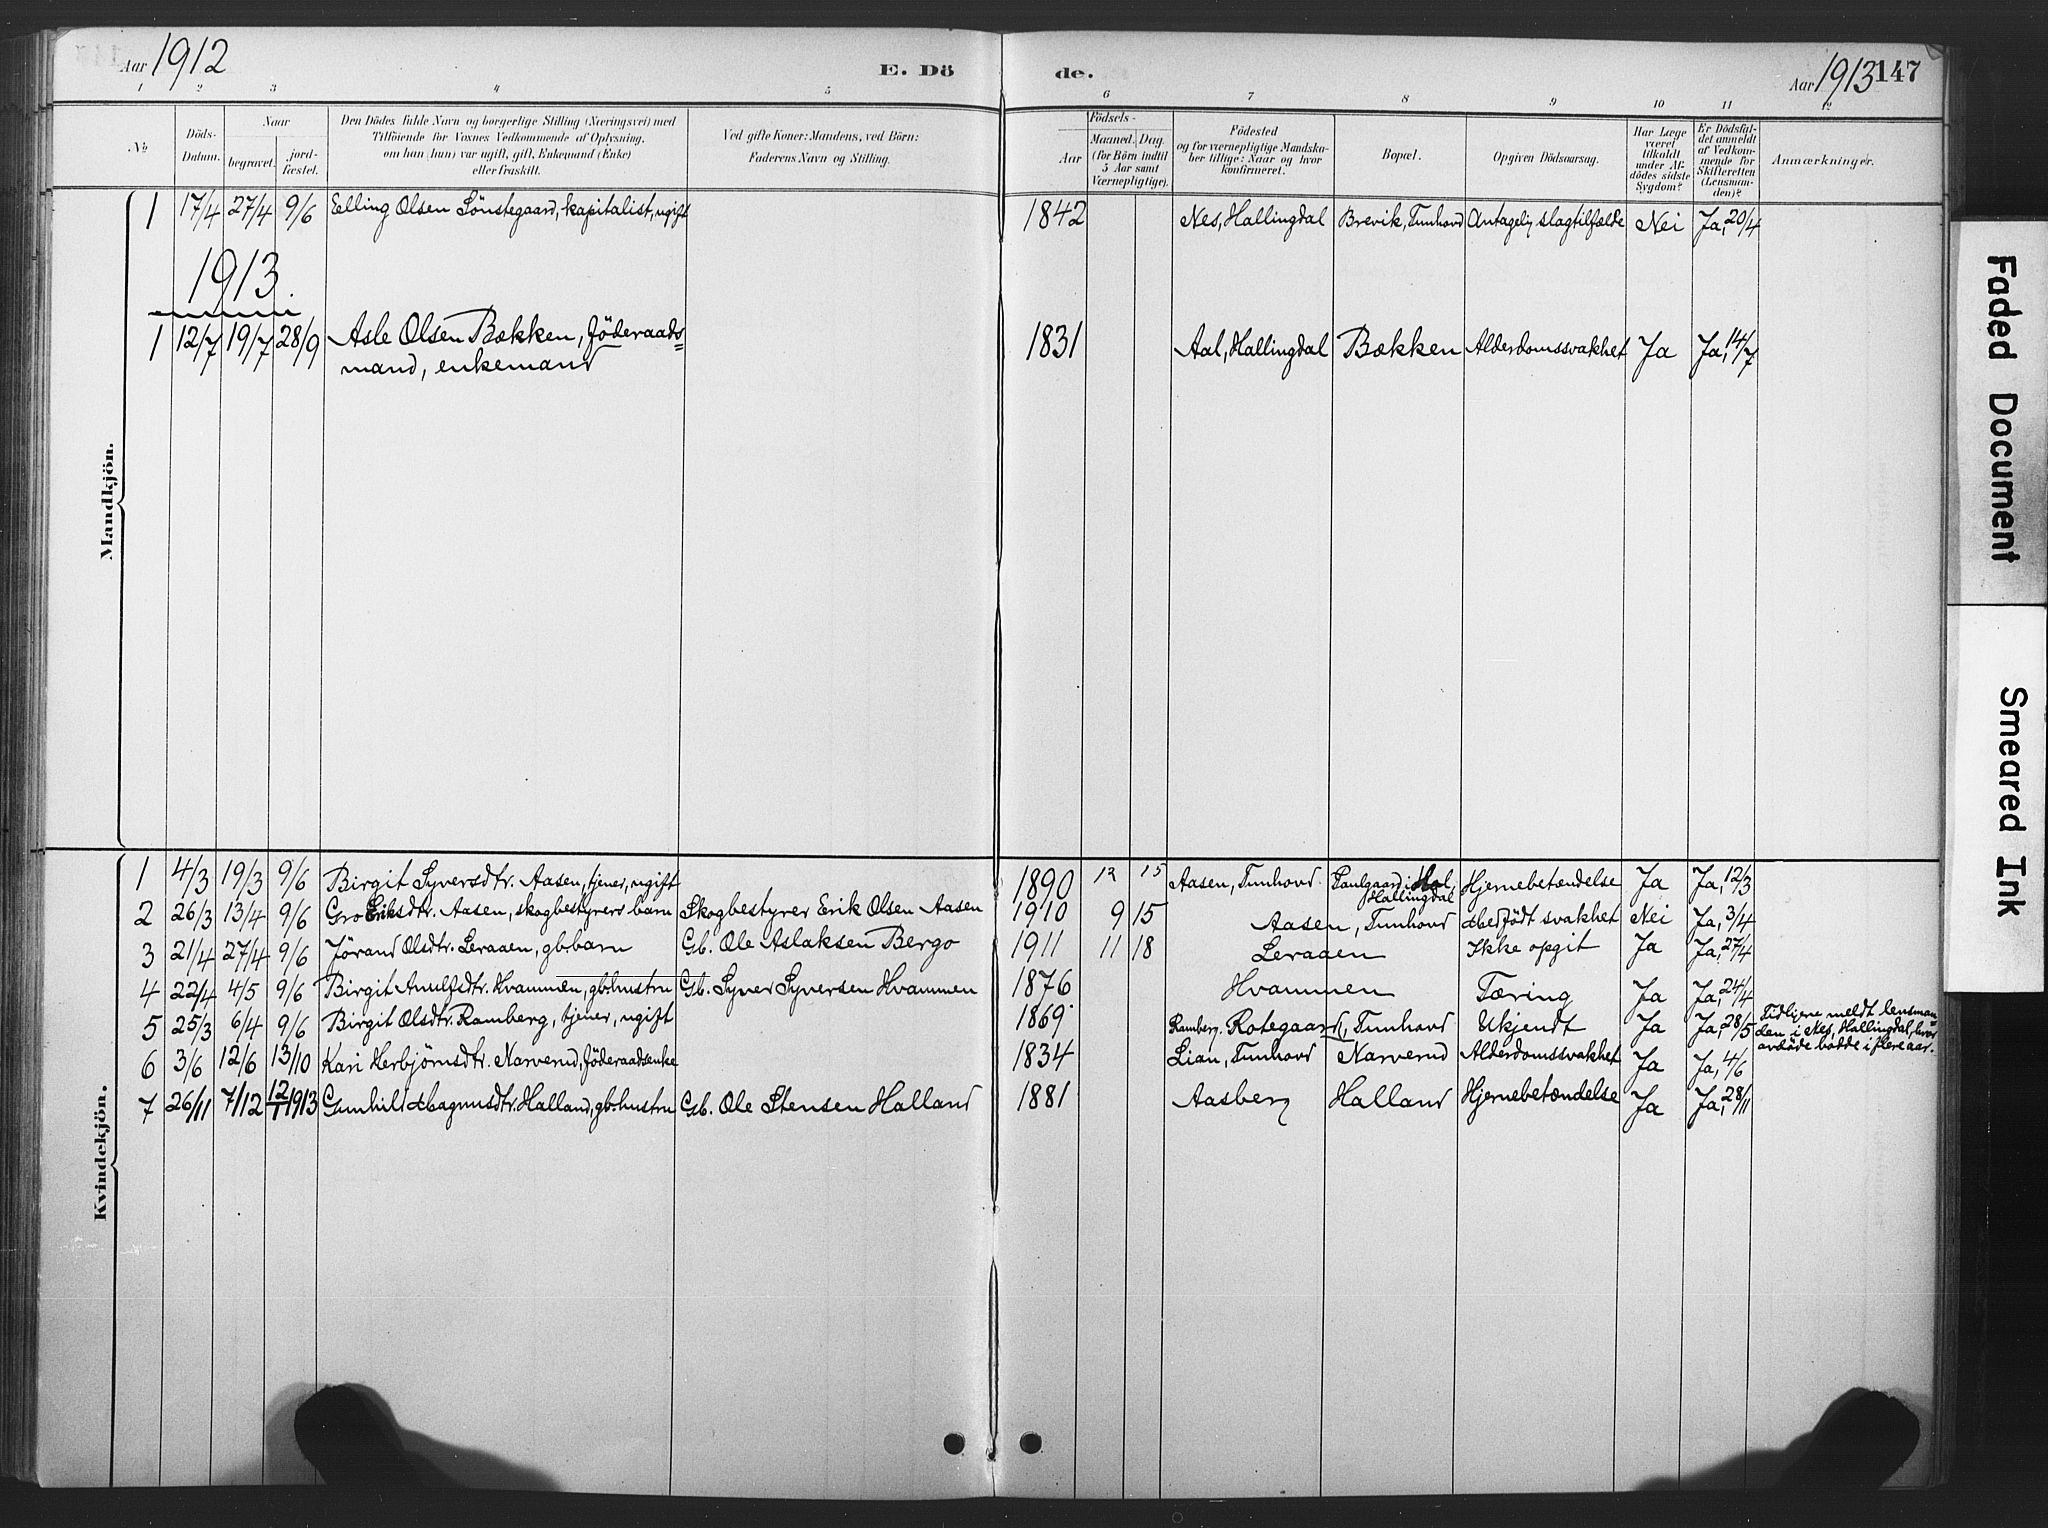 Aar 1912
E. Dö
de.
Aar 1913 147
1 2 3 4 5 6 7 8 9 10 11 12
No
Döds-
Datum.
Naar
begravet.
jord-
fæstet.
Den Dödes fulde Navn og borgerlige Stilling (Næringsvei) med
Tilföiende for Voxnes Vedkommende af Oplysning,
om han (hun) var ugift, gift, Enkemand (Enke)
eller fraskilt.
Ved gifte Koner: Mandens, ved Börn:
Faderens Navn og Stilling.
Födsels-
Aar
Maaned. Dag.
(for Börn indtil
5 Aar samt
Værnepligtige).
Födested
og for værnepligtige Mandska-
ber tillige: Naar og hvor
konfirmeret.
Bopæl.
Opgiven Dödsaarsag.
Har Læge
været
tilkaldt
under Af-
dödes sidste
Sygdom?
Er Dödsfal-
det anmeldt
af Vedkom-
mende for
Skifteretten
(Lensman-
den)?
Anmærkninger.
Mandkjön.
1 17/4 27/4 9/6 Elling Olsen Sönstegaard, kapitalist, ugift 1842 Nes, Hallingdal Brevik, Tunhovd Antagelig slagtilfælde Nei Ja, 20/4
1913.
1 12/7 19/7 28/9 Asle Olsen Bækken, Föderaads= 1831 Aal, Hallingdal Bækken Alderdomssvakhet Ja Ja, 14/7
mand, enkemand
Kvindekjön.
1 4/3 19/3 9/6 Birgit Syversdtr. Aasen, tjener, ugift 1890 12 15 Aasen, Tunhovd. Paulgaard i Hol, Hjernebetændelse Ja Ja, 12/3
Hallingdal
2 26/3 13/4 9/6 Gro Eriksdtr. Aasen, skogbestyrers barn Skogbestyrer Erik Olsen Aasen 1910 9 15 Aasen, Tunhovd Medfödt svakhet Nei Ja, 3/4
3 21/4 27/4 9/6 Jørand Olsdtr. Leraaen, gb.barn Gb. Ole Aslaksen Bergo 1911 11 18 Leraaen Ikke opgit Ja Ja, 27/4
4 22/4 4/5 9/6 Birgit Anulfsdtr. Hvammen, gb.hustru Gb. Syver Syversen Hvammen 1876 Hvammen Tæring Ja Ja, 24/4
5 25/3 6/4 9/6 Birgit Olsdtr. Ramberg, tjener, ugift 1869 Ramberg. Rotegaard, Tunhovd Ukjendt Ja Ja, 28/5 Tidligere meldt lensman=
den i Nes, Hallingdal, hvor
avdöde bodde i flere aar.
6 3/6 12/6 13/10 Kari Herbjörnsdtr. Narverud, Föderaadsenke 1834 Lian, Tunhovd Narverud Alderdomssvakhet Ja Ja, 4/6
7 26/11 7/12 12/1 1913 Gunhild Magnusdtr. Halland, gb.hustru Gb. Ole Stensen Halland 1881 Aasberg Halland Hjernebetændelse Ja Ja, 28/11
Faded Document
Smeared Ink